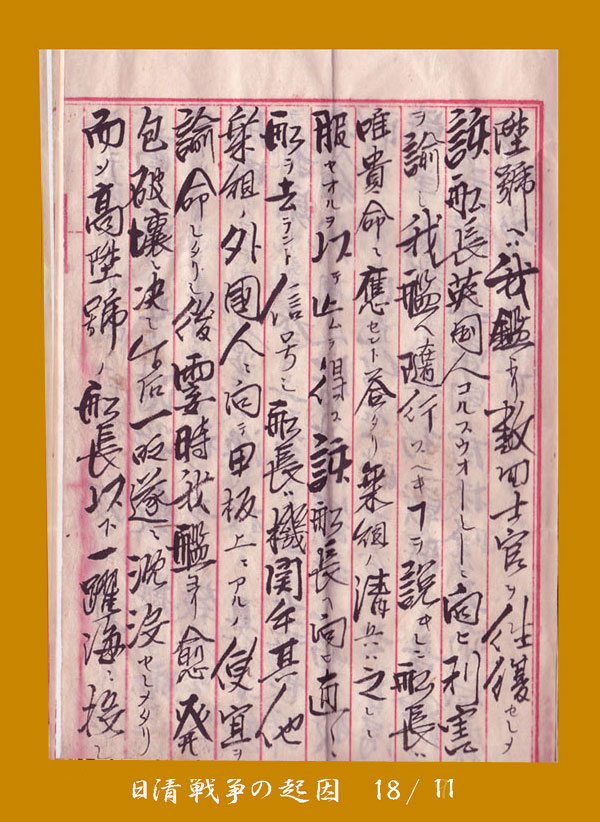 陞號ヘハ我艦ヨリ数回士官ヲ往復セシメ
該船長英国人コルスウオーシーニ向ヒ利害
ヲ諭シ我艦ヘ随行スヘキヿヲ説キシニ船長ハ
唯貴命ニ應セント答タリ乗組ノ清兵ハ之レニ
服セサルヲ以テ止ムヲ得ス該船長ヘ向ヒ直ニ
船ヲ去ラント信号シ船長ハ機関士其ノ他
乗組ノ外國人ニ向テ甲板上ニアルノ便宜ヲ
諭命シタリシ後霎時我艦ヨリ愈発
包破壊ニ决シ午后一時遂ニ沈没セシメタリ
而シ高陞號ノ船長以下一躍海ニ投シ
日清戦争の起因 18/11